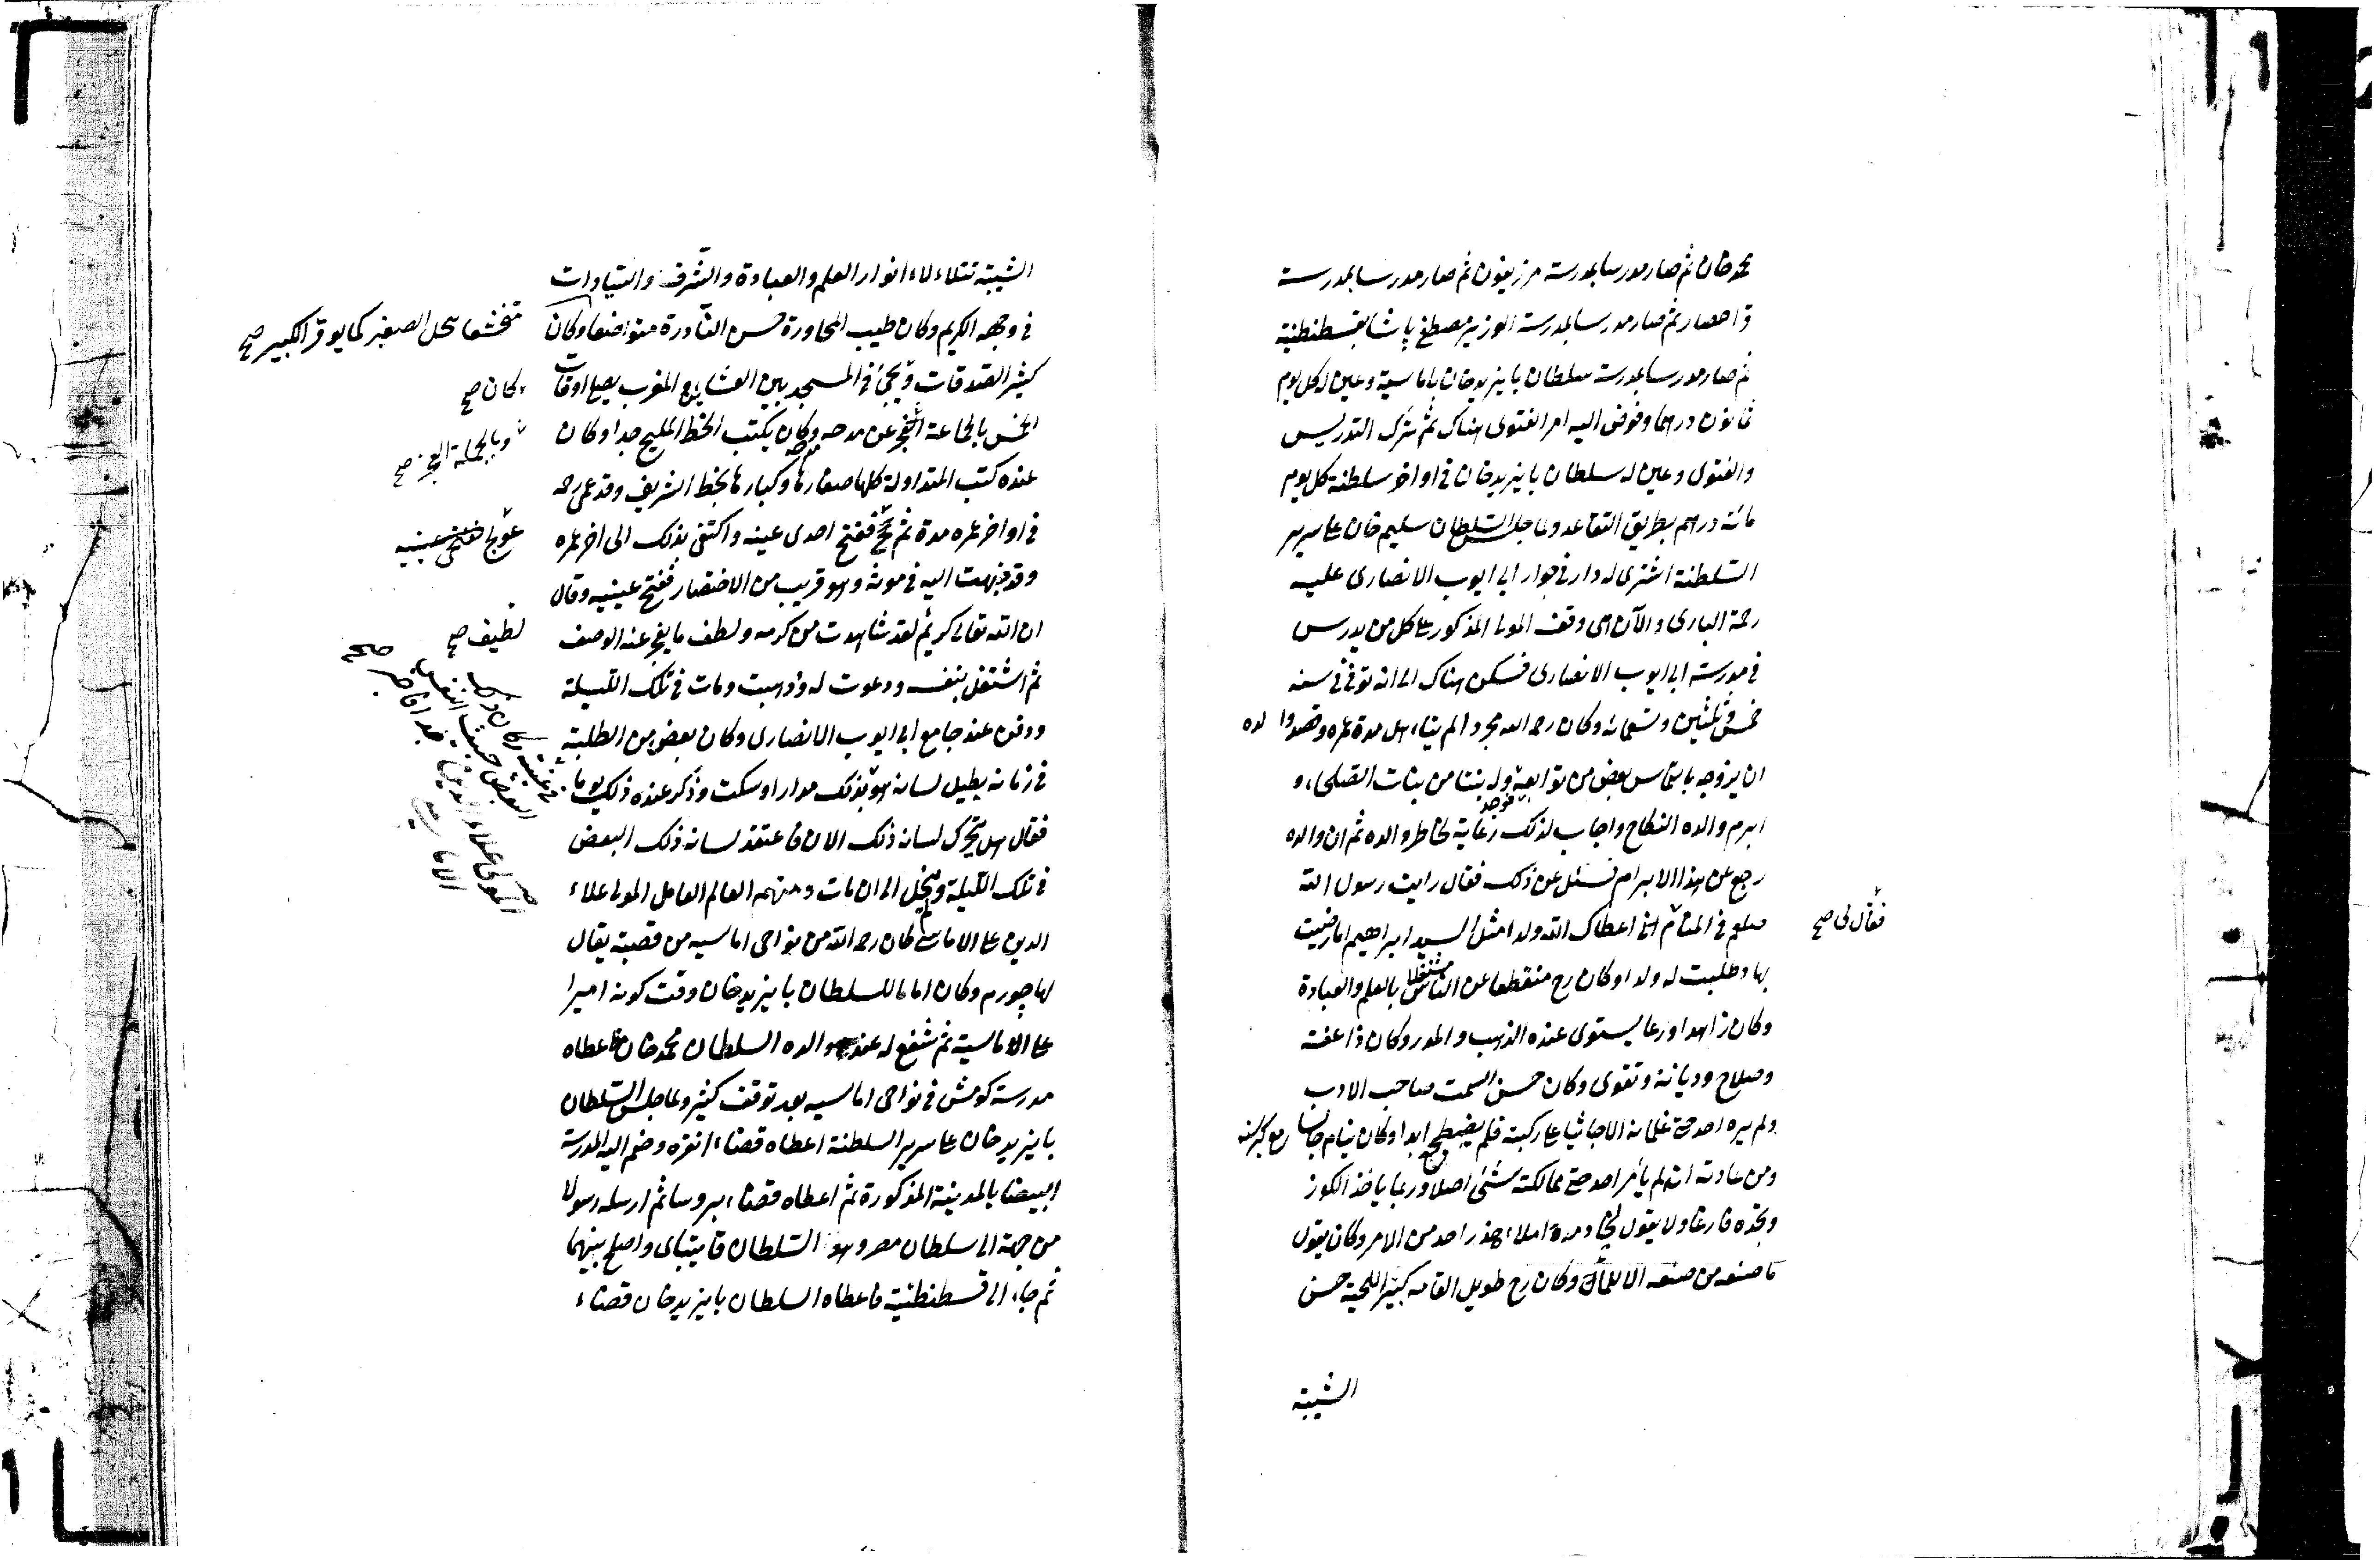 محمد خان ثم صار مدرسا بمدرسة مرزيفون ثم صار مدرسا بمدرسة
قراحصار ثم صار مدرسا بمدرسة الوزير مصطفى پاشا بقسطنطنية
ثم صار مدرسا بمدرسة سلطان بايزيد خان باماسية وعين له كل يوم
ثمانون درهما وفوض اليه امر الفتوى هناك ثم ترك التدريس
والفتوى وعين له سلطان بايزيد خان فى اواخر سلطنته كل يوم
مائة درهم بطريق التقاعد ولما جلس السلطان سليم خان على سرير
السلطنة اشترى له دار فى جوار ابى ايوب الانصارى عليه
رحمة البارى والآن هى وقف المولى المذكور على كل من يدرس
فى مدرسة ابى ايوب الانصارى فسكن هناك الى ان توفى فى سنه
خمس وثلثين وتسعمائه وكان رحمه الله مجردا لم يتاهل مدة عمره وقصد والده
ان يزوجه بالتماس بعض من توابعه فوجد له بنتا من بنات الصلحاء و
ابرم والده النكاح واجاب لذلك رعاية لخاطر والده ثم ان والده
رجع عن هذا الابرام فسئل عن ذلك فقال رايت رسول الله
صلعم فى المنام فقال لى صح انى اعطاك الله ولدا مثل السيد ابراهيم اما رضيت
بها وطلبت له ولدا وكان رح منقطعا عن الناس مشتغلا بالعلم والعبادة
وكان زاهدا ورعا يستوى عنده الذهب والمدر وكان ذا عفة
وصلاح وديانة وتقوى وكان حسن السمت صاحب الادب
ولم يره احد حتى غلمانه الا جاثيا على ركبته فلم يضطجع ابدا وكان ينام جالسا مع كبر سنه
ومن عادته انه لم يأمر احد حتى مماليكه شئى اصلا وربما ياخذ الكوز
ويجده فارغا ولا يقول لخادمه املاء حذرا من الامر وكان يقول
ما صنعه من صنعه الا للمأ وكان رح طويل القامه كبير اللحية حسن
الشيبة
الشيبة تتلاءلاء انوار العلم والعبادة والشرف والسيادات
فى وجهه الكريم وكان طيب المحاورة حسن النادرة متواضعا وكان
متخشعا يجل الصغير كما يوقر الكبير صح
كثير الصدقات ويحيى فى المسجد بين العشائين المغرب يصلى اوقات
كان صح
الخمس بالجماعة العجز عن مدحه وكان يكتب الخط المليح جدا وكان
وبالجملة العجز صح
عنده كتب المتداولة كلها صغارها وكبارها بخط الشريف وقد عمى رحه
فى اواخر عمره مدة ثم فتح احدى عينه واكتفى بذلك الى اخر عمره
عولج ففتح عينيه
وقد ذهبت اليه فى موته وهو قريب من الاحتضار ففتح عينيه وقال
ان الله تعالى كريم لقد شاهدت من كرمه ولطف ما يعجز عنه الوصف
لطيف صح
ثم اشتغل بنفسه ودعوت له وذهبت ومات فى تلك الليلة
ودفن عند جامع ابى ايوب الانصارى وكان بعض من الطلبة
فى زمانه يطيل لسانه هو بذلك مدارا وسكت وذكر عنده ذلك يوما
فقال هل يتحرك لسانه ذلك الان فاعتقد لسانه ذلك البعض
فى تلك الليلة ولم ينحل الى ان مات ومنهم العالم العامل المولى علاء
الدين على الاماسى كان رحمه الله من نواحى اماسيه من قصبة يقال
لها چورم وكان اماما للسلطان بايزيد خان وقت كونه اميرا
على الاماسية ثم شفع له عند والده السلطان محمد خان فاعطاه
مدرسة كومش فى نواحى اماسيه بعد توقف كثير ولما جلس السلطان
بايزيد خان على سرير السلطنة اعطاه قضاء انقره وضم اليه المدرسة
البيضا بالمدينة المذكورة ثم اعطاه قضاء بروسا ثم ارسله رسولا
من جهة الى سلطان مصر وهو السلطان قايتباى واصلح بينهما
ثم جاء الى قسطنطنية فاعطاه السلطان بايزيد خان قضاء